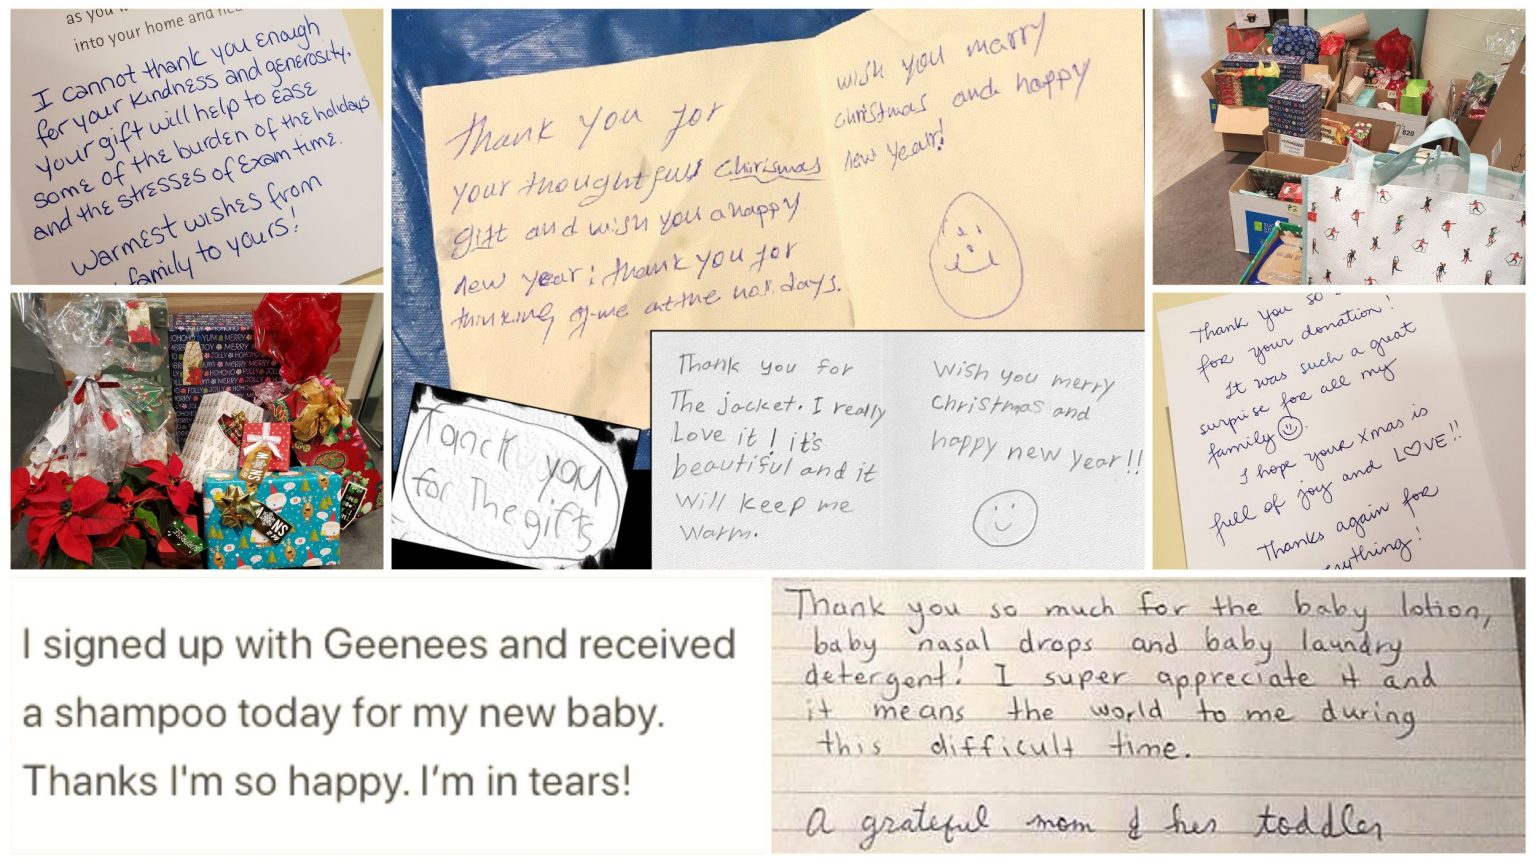 as you
into your home and
I cannot thank you enough
for your kindness and generosity.
Your gift will help to ease
some of the burden of the holidays
and the stresses of exam time.
Warmest wishes from
family to yours!
Thank you for
your thoughtful Chirismas
gift and wish you a happy
new year: thank you for
thinking of me at the days.
wish you marry
christmas and happy
new year!
820
HOHOHO YUM MERRY
JOLLY HOHOHO
Tanck you
for The gifts
Thank you for
The jacket. I really
Love it! it's
beautiful and it
will keep me
warm.
Wish you merry
Christmas and
happy new year!!
Thank you so
for your donation!
It was such a great
surprise for all my
family
I hope your xmas is
full of joy and LOVE!!
Thanks again for
I signed up with Geenees and received
a shampoo today for my new baby.
Thanks I'm so happy. I’m in tears!
Thank you so much for the baby lotion,
baby nasal drops and baby laundry
detergent! I super appreciate it and
it means the world to me during
this difficult time.
A grateful mom & her toddler